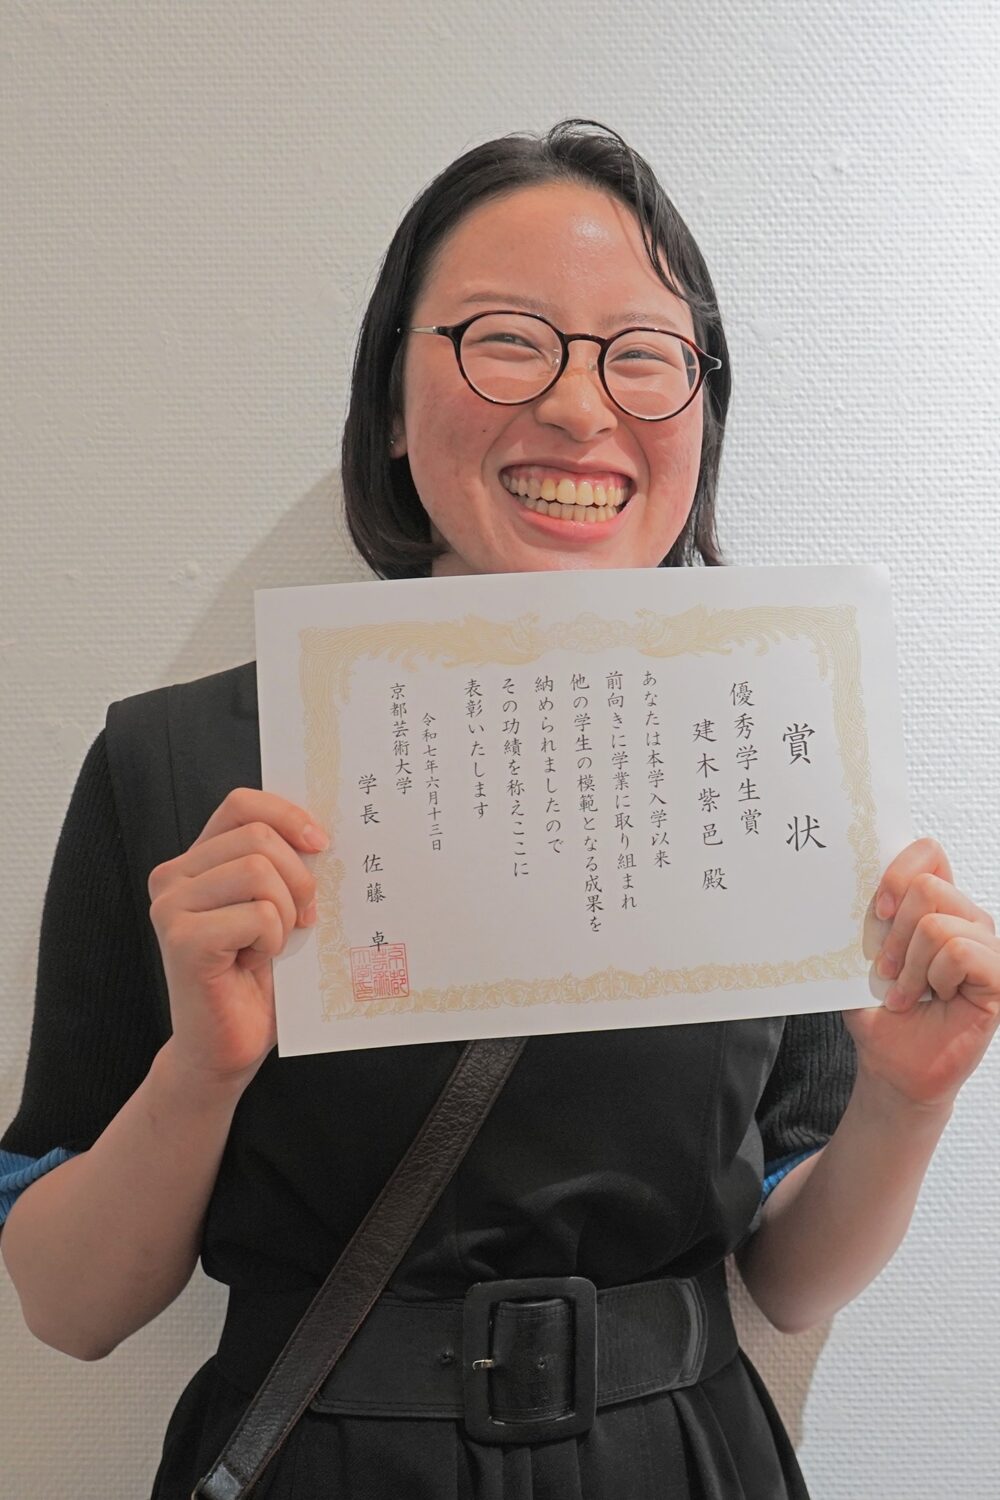 賞状
優秀学生賞
建木紫邑 殿
あなたは本学入学以来
前向きに学業に取り組まれ
他の学生の模範となる成果を
納められましたので
その功績を称えここに
表彰いたします
令和七年六月十三日
京都芸術大学
学長 佐藤 卓
京都
芸術
大学印